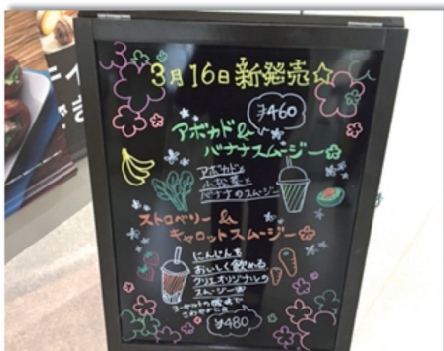 3月16日新発売☆
¥460
アボカド&
バナナスムージー
アボカドと
小松菜と
バナナのスムージー
ストロベリー&
キャロットスムージー
にんじんを
おいしく飲める
クリエオリジナルの
スムージー
ヨーグルトの酸味で
さわやかに
¥480